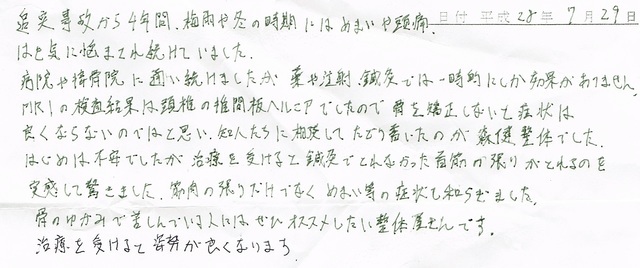 日付 平成28年 7月29日
追突事故から4年間、梅雨や冬の時期にはめまいや頭痛、
はき気に悩まされ続けていました。
病院や接骨院に通い続けましたが 薬や注射、鍼灸では一時的にしか効果がありません。
MRIの検査結果は頚椎の椎間板ヘルニアでしたので骨を矯正しないと症状は
良くならないのではと思い、知人たちに相談してたどり着いたのが 森健整体でした。
はじめは不安でしたが 治療を受けると鍼灸でとれなかった首筋の張りがとれるのを
実感して驚きました。筋肉の張りだけでなく めまい等の症状も和らぎました。
骨のゆがみで苦しんでいる人には ぜひオススメしたい整体屋さんです。
治療を受けると姿勢が良くなります。